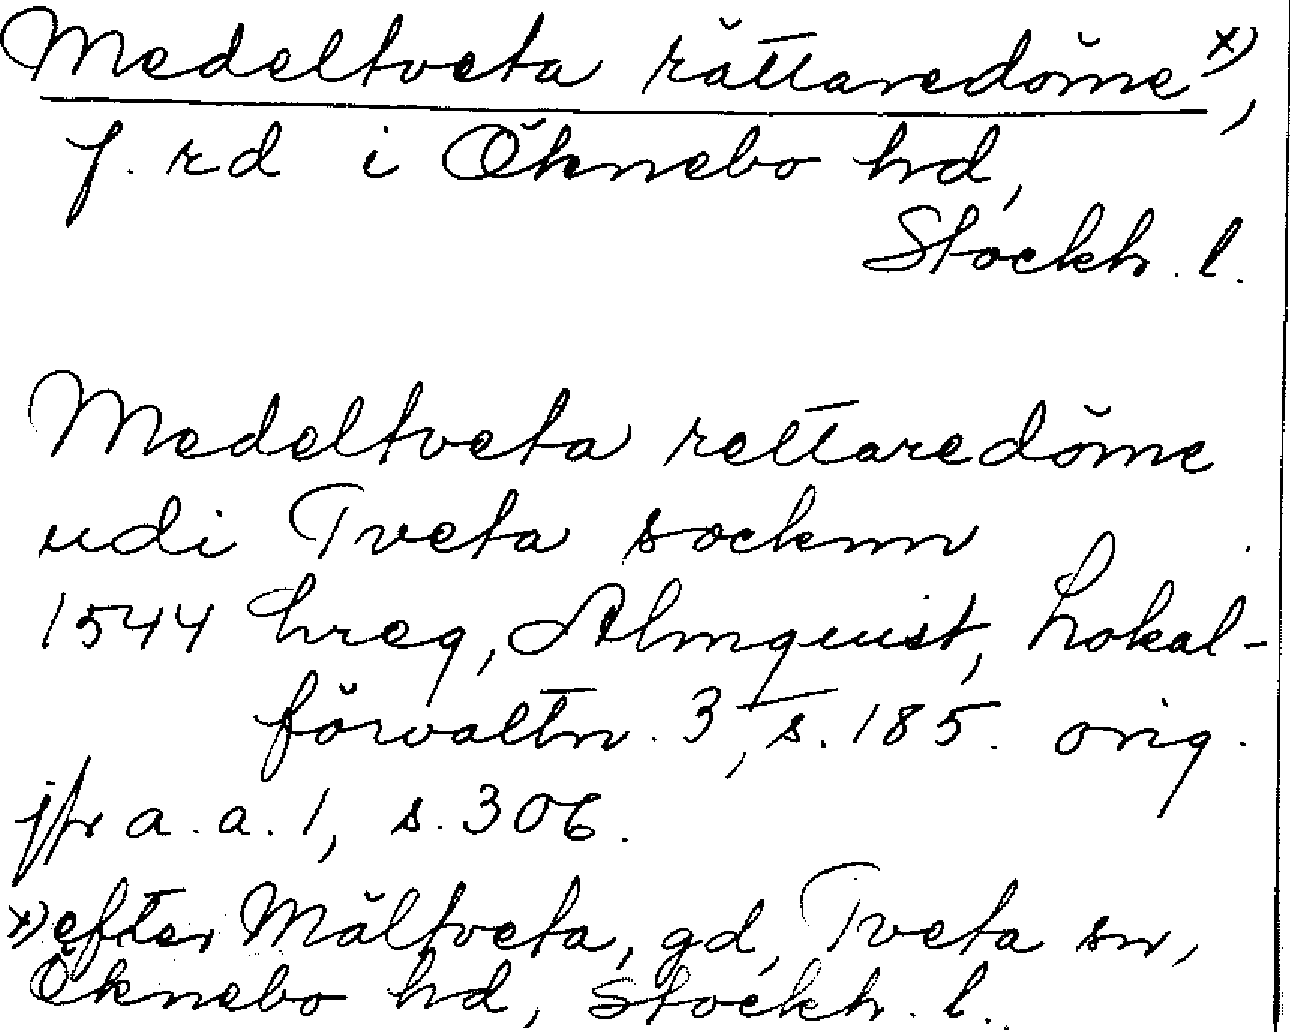 Medeltveta rättaredöme x),
f. rd i Öknebo hd,
Stockh. l.
Medeltveta rettaredöme
udi Tveta socknn
1544 hreg, Almquist, Lokal-
förvaltn. 3, s. 185. orig.
jfr a. a. 1, s. 306.
x) efter Mältveta, gd, Tveta sn,
Öknebo hd, Stockh. l.